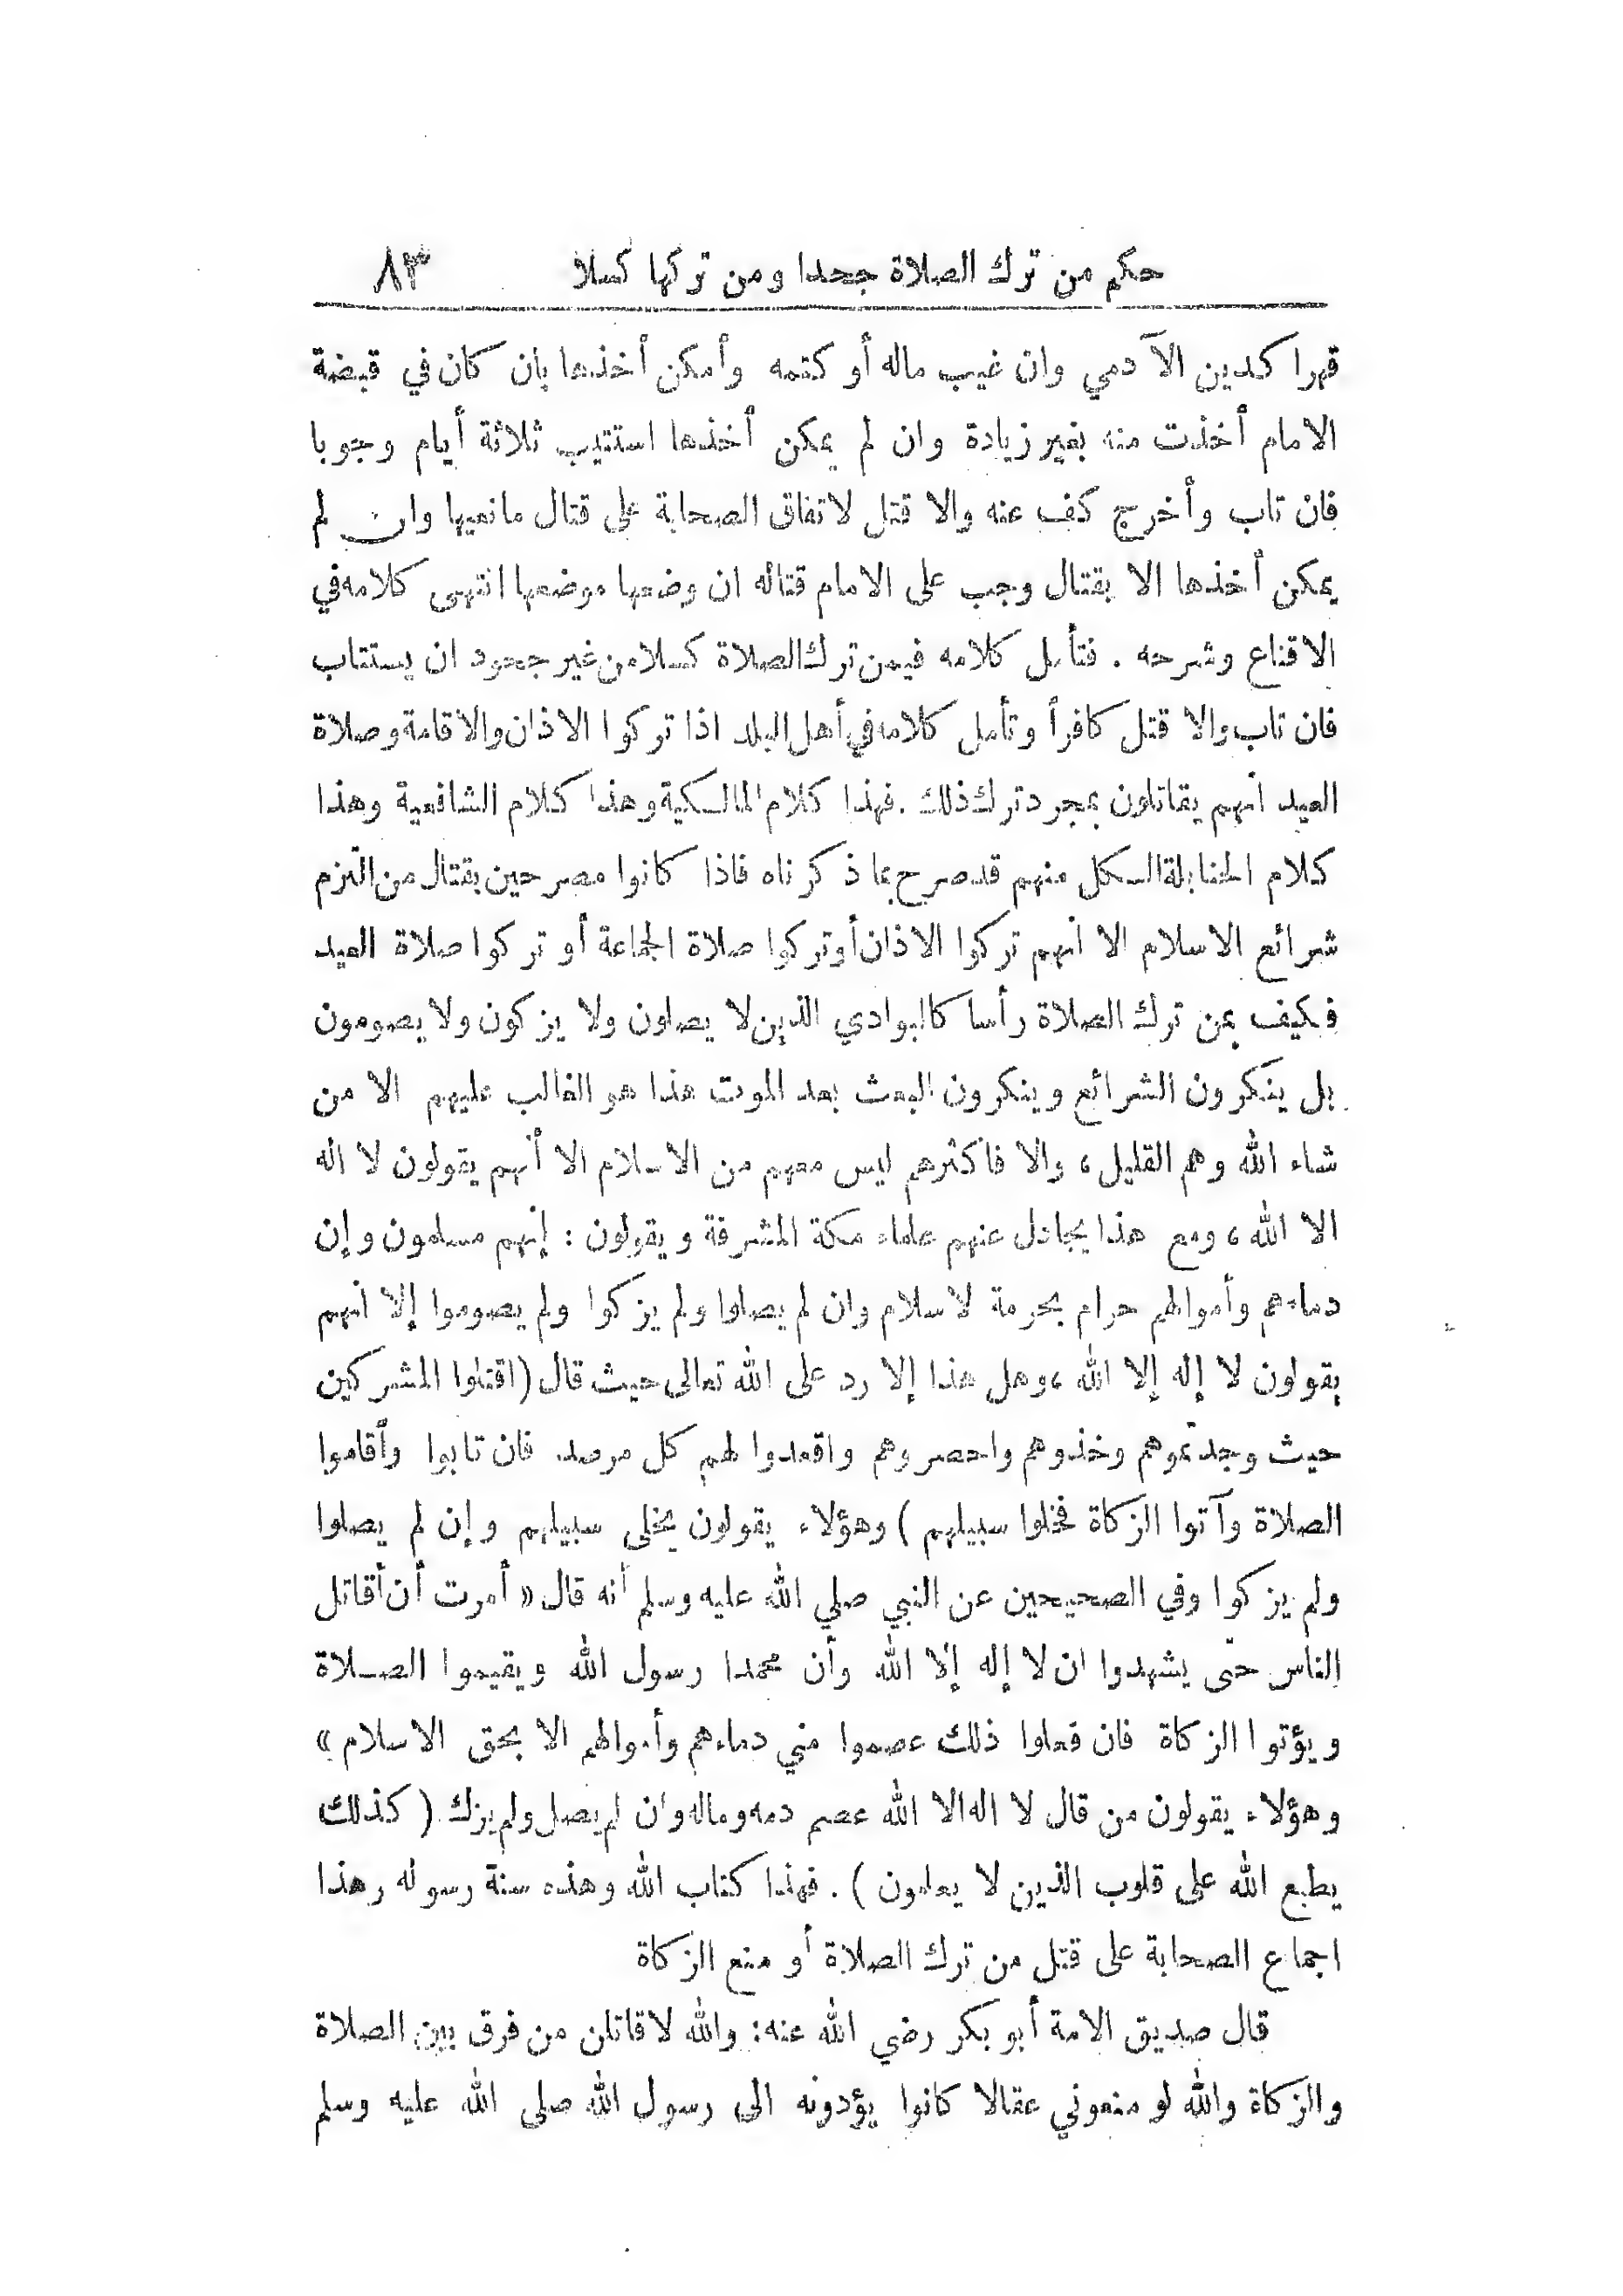 حكم من ترك الصلاة جحدا ومن تركها كسلا ٨٣
قهرا كدين الآدمي وان غيب ماله أو كتمه وأمكن أخذها بأن كان في قبضة
الامام أخذت منه بغير زيادة وان لم يمكن أخذها استتيب ثلاثة أيام وجوبا
فان تاب وأخرج كف عنه والا قتل لاتفاق الصحابة على قتال مانعيها وان لم
يمكن أخذها الا بقتال وجب على الامام قتاله ان وضعها موضعها انتهى كلامه في
الاقناع وشرحه . فتأمل كلامه فيمن ترك الصلاة كسلا من غير جحود ان يستتاب
فان تاب والا قتل كافراً وتأمل كلامه في أهل البلد اذا تركوا الاذان والاقامة وصلاة
العيد انهم يقاتلون بمجرد ترك ذلك . فهذا كلام المالكية وهذا كلام الشافعية وهذا
كلام الحنابلة الكل منهم قد صرح بما ذكرناه فاذا كانوا مصرحين بقتال من التزم
شرائع الاسلام الا انهم تركوا الاذان أو تركوا صلاة الجماعة أو تركوا صلاة العيد
فكيف بمن ترك الصلاة رأسا كالبوادي الذين لا يصلون ولا يزكون ولا يصومون
بل ينكرون الشرائع وينكرون البعث بعد الموت هذا هو الغالب عليهم الا من
شاء الله وهم القليل ، والا فاكثرهم ليس معهم من الاسلام الا أنهم يقولون لا اله
الا الله ، ومع هذا يجادل عنهم علماء مكة المشرفة ويقولون : إنهم مسلمون وإن
دماءهم وأموالهم حرام بحرمة لاسلام وان لم يصلوا ولم يزكوا ولم يصوموا إلا انهم
يقولون لا إله إلا الله ، وهل هذا إلا رد على الله تعالى حيث قال (اقتلوا المشركين
حيث وجدتموهم وخذوهم واحصروهم واقعدوا لهم كل مرصد . فان تابوا وأقاموا
الصلاة وآتوا الزكاة فخلوا سبيلهم ) وهؤلاء يقولون يخلى سبيلهم وإن لم يصلوا
ولم يزكوا وفي الصحيحين عن النبي صلي الله عليه وسلم أنه قال « أمرت أن أقاتل
الناس حتى يشهدوا ان لا إله إلا الله وأن محمدا رسول الله ويقيموا الصلاة
ويؤتوا الزكاة فان فعلوا ذلك عصموا مني دماءهم وأموالهم الا بحق الاسلام »
وهؤلاء يقولون من قال لا اله الا الله عصم دمه وماله وان لم يصل ولم يزك ( كذلك
يطبع الله على قلوب الذين لا يعلمون ) . فهذا كتاب الله وهذه سنة رسوله وهذا
اجماع الصحابة على قتل من ترك الصلاة أو منع الزكاة
قال صديق الامة أبو بكر رضي الله عنه : والله لاقاتلن من فرق بين الصلاة
والزكاة والله لو منعوني عقالا كانوا يؤدونه الى رسول الله صلى الله عليه وسلم